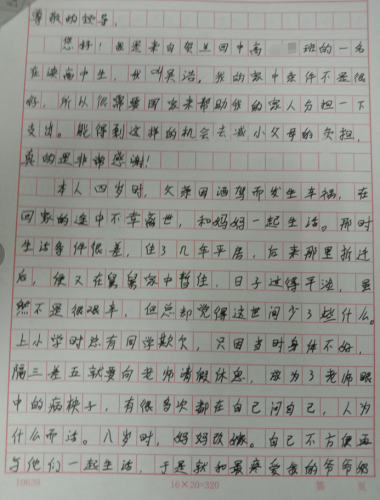 尊敬的领导:
您好!我是来自贺兰回中高 班的一名
在读高中生,我叫吴浩。我的家中条件不是很
好,所以很需要国家来帮助我的家人分担一下
支出。能得到这样的机会去减小父母的负担,
真的是非常感谢!
本人四岁时,父亲因酒驾而发生车祸,在
回家的途中不幸离世,和妈妈一起生活。那时
生活条件很差,住了几年平房,后来那里拆迁
后,便又在舅舅家中暂住,日子过得平淡,虽
然不是很艰辛,但总却觉得这世间少了些什么。
上小学时总有同学欺欠,只因当时身体不好,
隔三差五就要向老师请假休息,成为了老师眼
中的病秧子,有很多次都在自己问自己,人为
什么而活。八岁时,妈妈改嫁。自己不方便再
与他们一起生活,于是就和最疼爱我的爷爷奶
10639
16×20=320
第 页